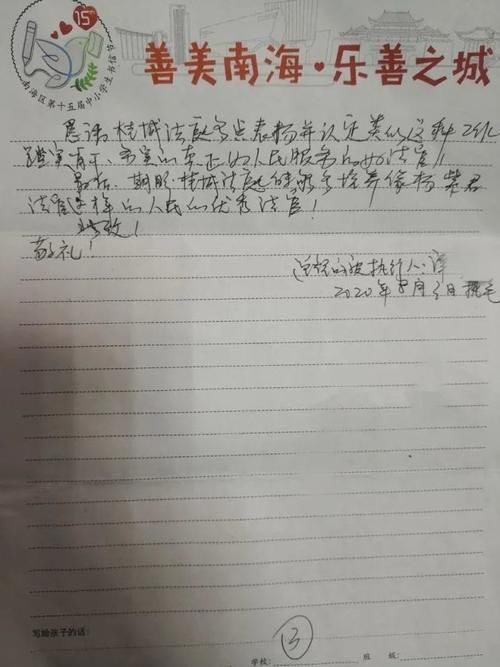 15
南海区第十五届中小学生书信节
善美南海·乐善之城
恳请桂城法庭多点表扬并认定类似这种工作
踏实肯干、务实的真正为人民服务的好法官！
最后，期盼桂城法庭能够多培养像杨紫君
法官这样的人民的优秀法官！
此致！
敬礼！
被执行人：
2020年8月3日
写给孩子的话：
13
学校： 班 级：